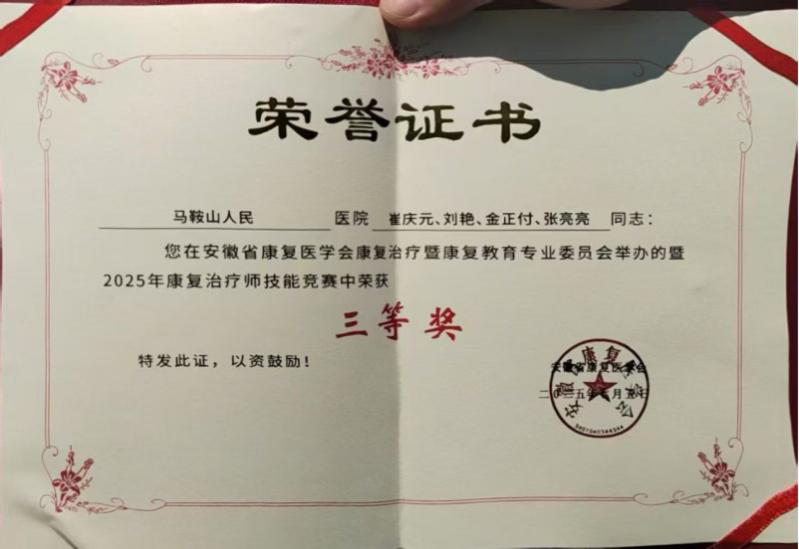 荣誉证书
马鞍山人民 医院 崔庆元、刘艳、金正付、张亮亮 同志：
您在安徽省康复医学会康复治疗暨康复教育专业委员会举办的暨
2025年康复治疗师技能竞赛中荣获
三等奖
特发此证，以资鼓励！
安徽省康复医学会
安徽省康复医学会